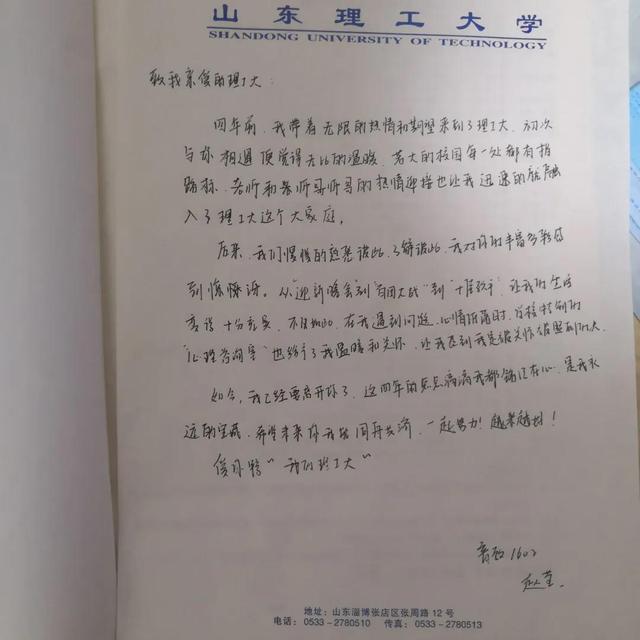 山东理工大学
SHANDONG UNIVERSITY OF TECHNOLOGY
致我亲爱的理工大：
四年前，我带着无限的热情和期望来到了理工大，初次
与你相遇便觉得无比的温暖，若大的校园每一处都有指
路标，老师和学姐的热情迎接也让我迅速的就融
入了理工大这个大家庭。
后来，我们慢慢的熟悉彼此，了解彼此，我对你的丰富多彩感
到惊讶。从“迎新晚会”到“百团大战”到“十佳歌手”，让我的生活
变得十分充实，不仅如此，在我遇到问题，心情低落时，学校特别的
“心理咨询室”也给予了我温暖和关怀，让我感到我是被关怀被照顾的人。
如今，我已经要离开你了，这四年的点点滴滴我都铭记在心，是我永
远的宝藏，希望未来你我能同舟共济，一起努力！越来越好！
“我的理工大”
1602
地址：山东淄博张店区张周路 12 号
电话：0533－2780510 传真：0533－2780513